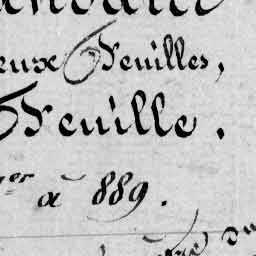 eux Feuilles,
Feuille.
er à 889.
du